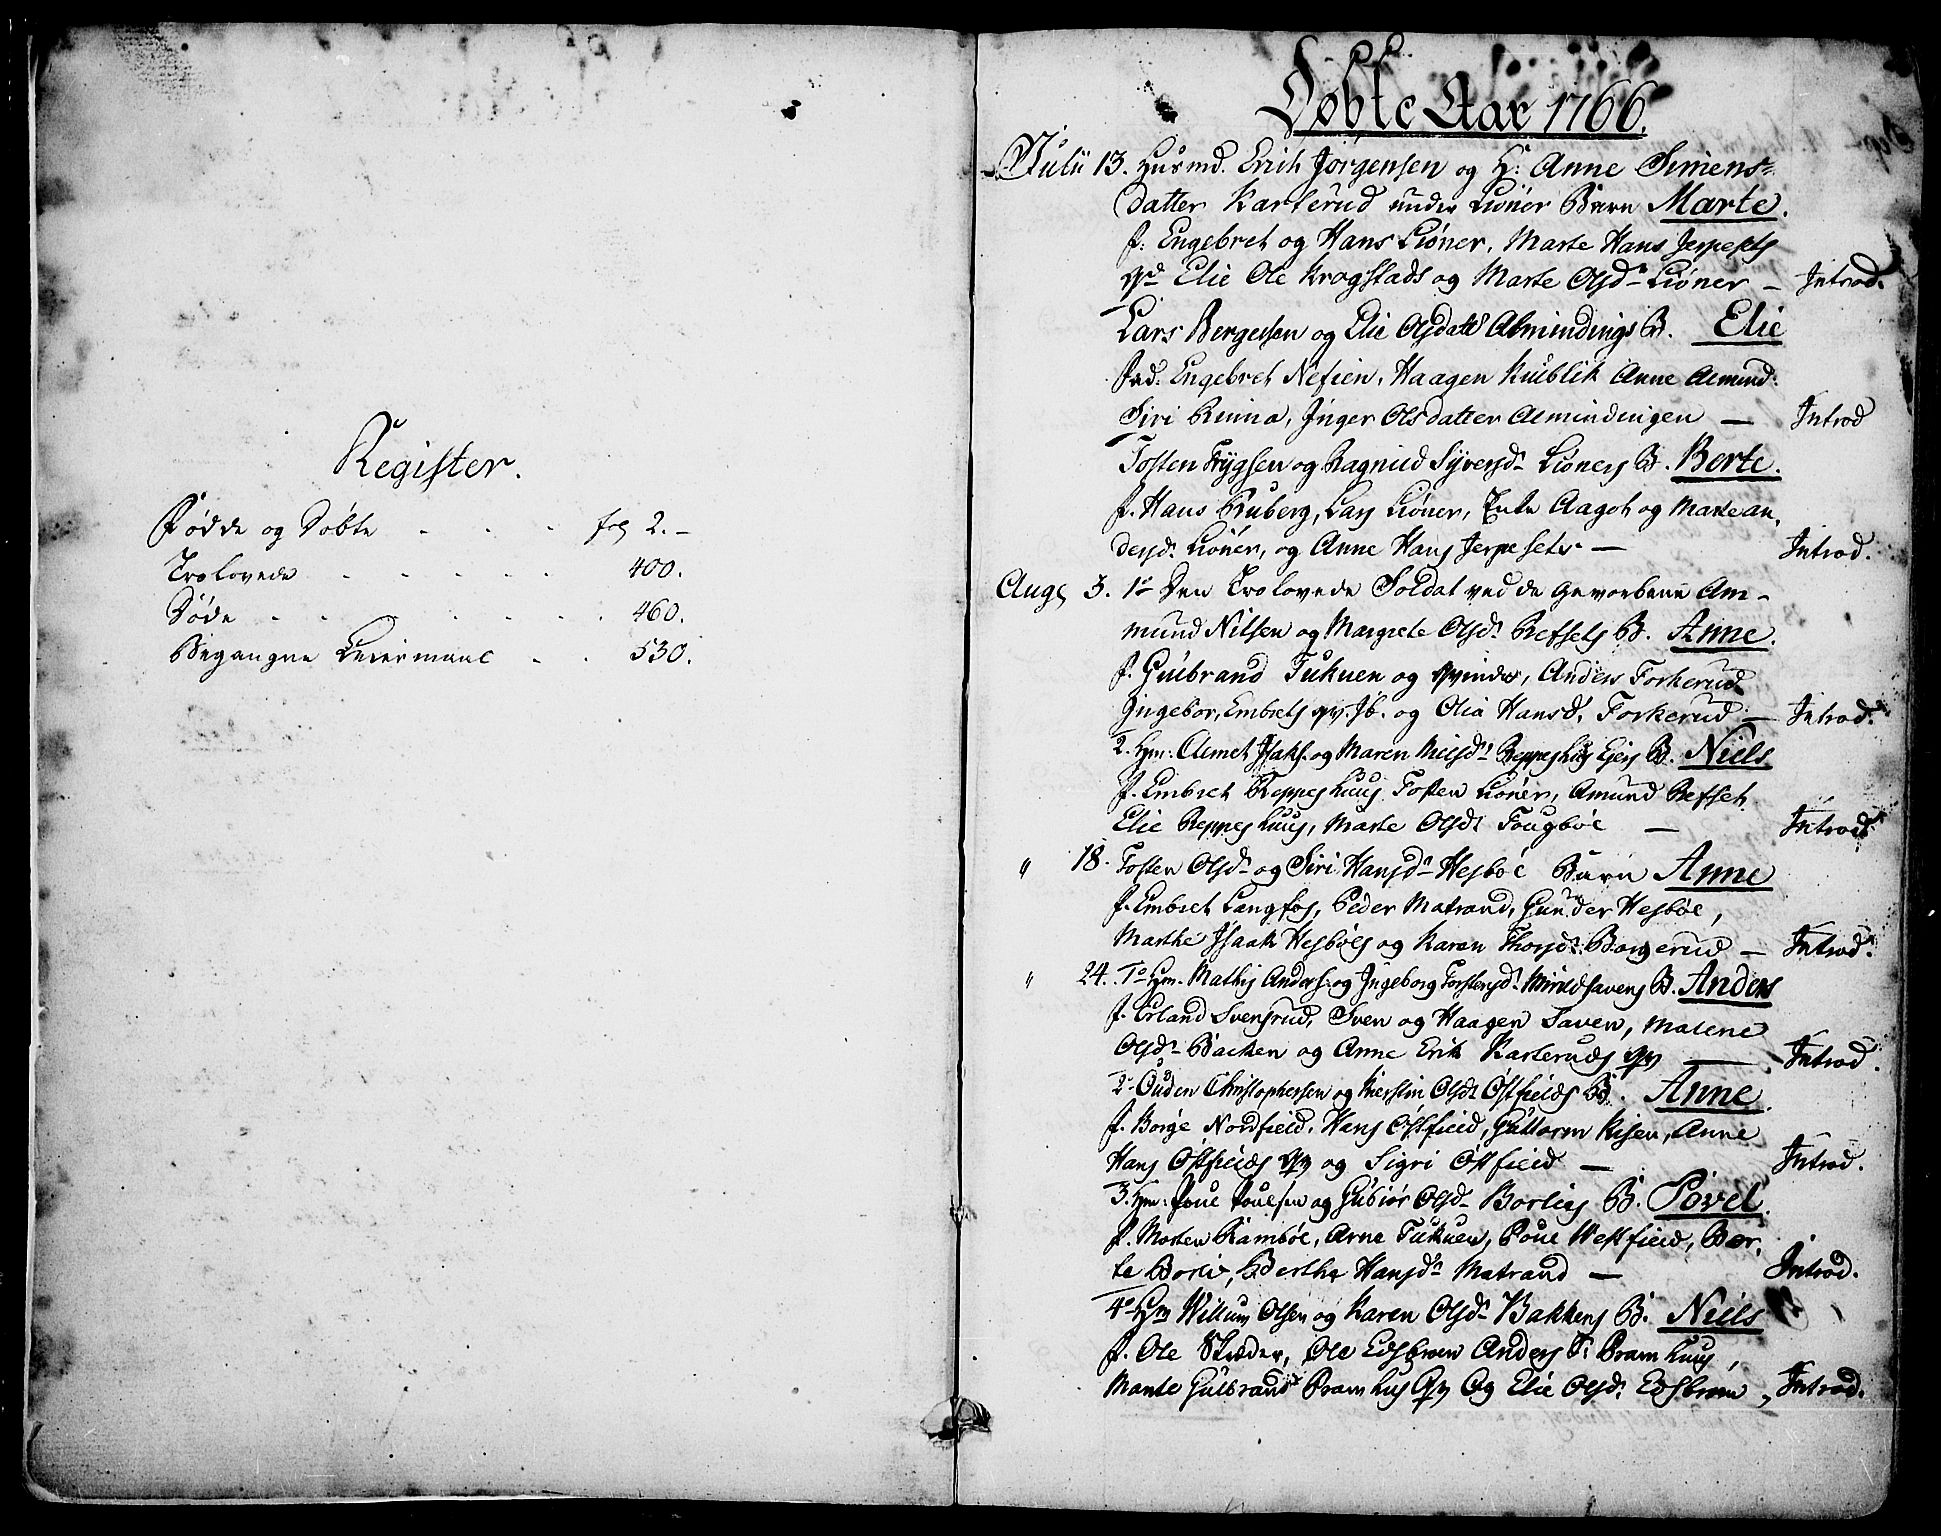 Register.
Fødde og Døbte - - - fol 2. -
Trolovede - - - - - 400.
Døde - - - - - - - 460.
Begangne Leiermaal - - 530.
Døbte Aar 1766.
Julii 13. Husmd. Erich Jørgensen og H: Anne Simens=
datter Karterud under Liøner Barn Marte.
f: Engebret og Hans Liøner, Marte Hans Jerpesets
qvd Elie Ole Krogstads og Marte Olsd Liøner - Introd.
Lars Bergersen og Elie Olsdatt Almindings B. Elie
Fad. Engebret Nefien, Haagen Kulblik Anne Almind:
Siri Rinna, Inger Olsdatter Almindingen - Introd
Tosten Trygsen og Ragnild Syversd. Lioners B. Berte.
f. Hans Bruberg, Lars Liøner, Aagot og Marte An,
dersd. Liöner, og Anne Hans Jerpesets. - Introd.
Aug 3. 1o Den Trolovede Soldat ved de Gevorbene Am-
mund Nilsen og Margrete Olsd. Refsets B. Anne.
f. Gulbrand Tukuen og qvinde, Anders Forkerud
Ingebor, Embrets qv. Ib. og Olia Hansd. Forkerud - Introd.
2. Hm: Amet Isaks. og Maren Nielsd. Reppeshus Eiers B. Niels
f. Embret Reppeshuus Tosten Liöner, Amund Refset
Elie Reppeshuus, Marte Olsd. Fougböe - Introd.
" 18. Tosten Olsd. og Siri Hansd. Hesböe Barn Anne
f. Embret Langfos, Peder Matrand, Gunder Hesböe,
Marthe Isaak Hesböes og Karen Thorsd. Borgerud - Introd.
" 24. 1o Hm. Mathis Anders. og Ingeborg Torstensd. B. Anders
f. Erland Svensrud, Sven og Haagen Saven, Malene
Olsd. Backen og Anne Erik Karteruds qv - Introd.
2. Ouden Christophersen og Kierstin Olsd. Östfields B. Anne.
f. Börge Nordfield, Hans Östfield, Guttorm Risen, Anne
Hans Östfields qv og Sigri Östfield - Introd.
3. Hm: Poul Poulsen og Gubiör Olsd. Borlies B. Povel.
f. Morten Ramböe, Arne Tukuen, Poul Westfield, Ber,
te Borli, Berthe Hansd. Matrand - Introd.
4o Hm Willum Olsen og Karen Olsd. Bakkens B. Niels
f. Ole Stræder, Ole Edsbroen Anders S: Pramhuus,
Marte Gulbrand Pramhus Qv Og Elie Olsd. Edsbroen, Introd.